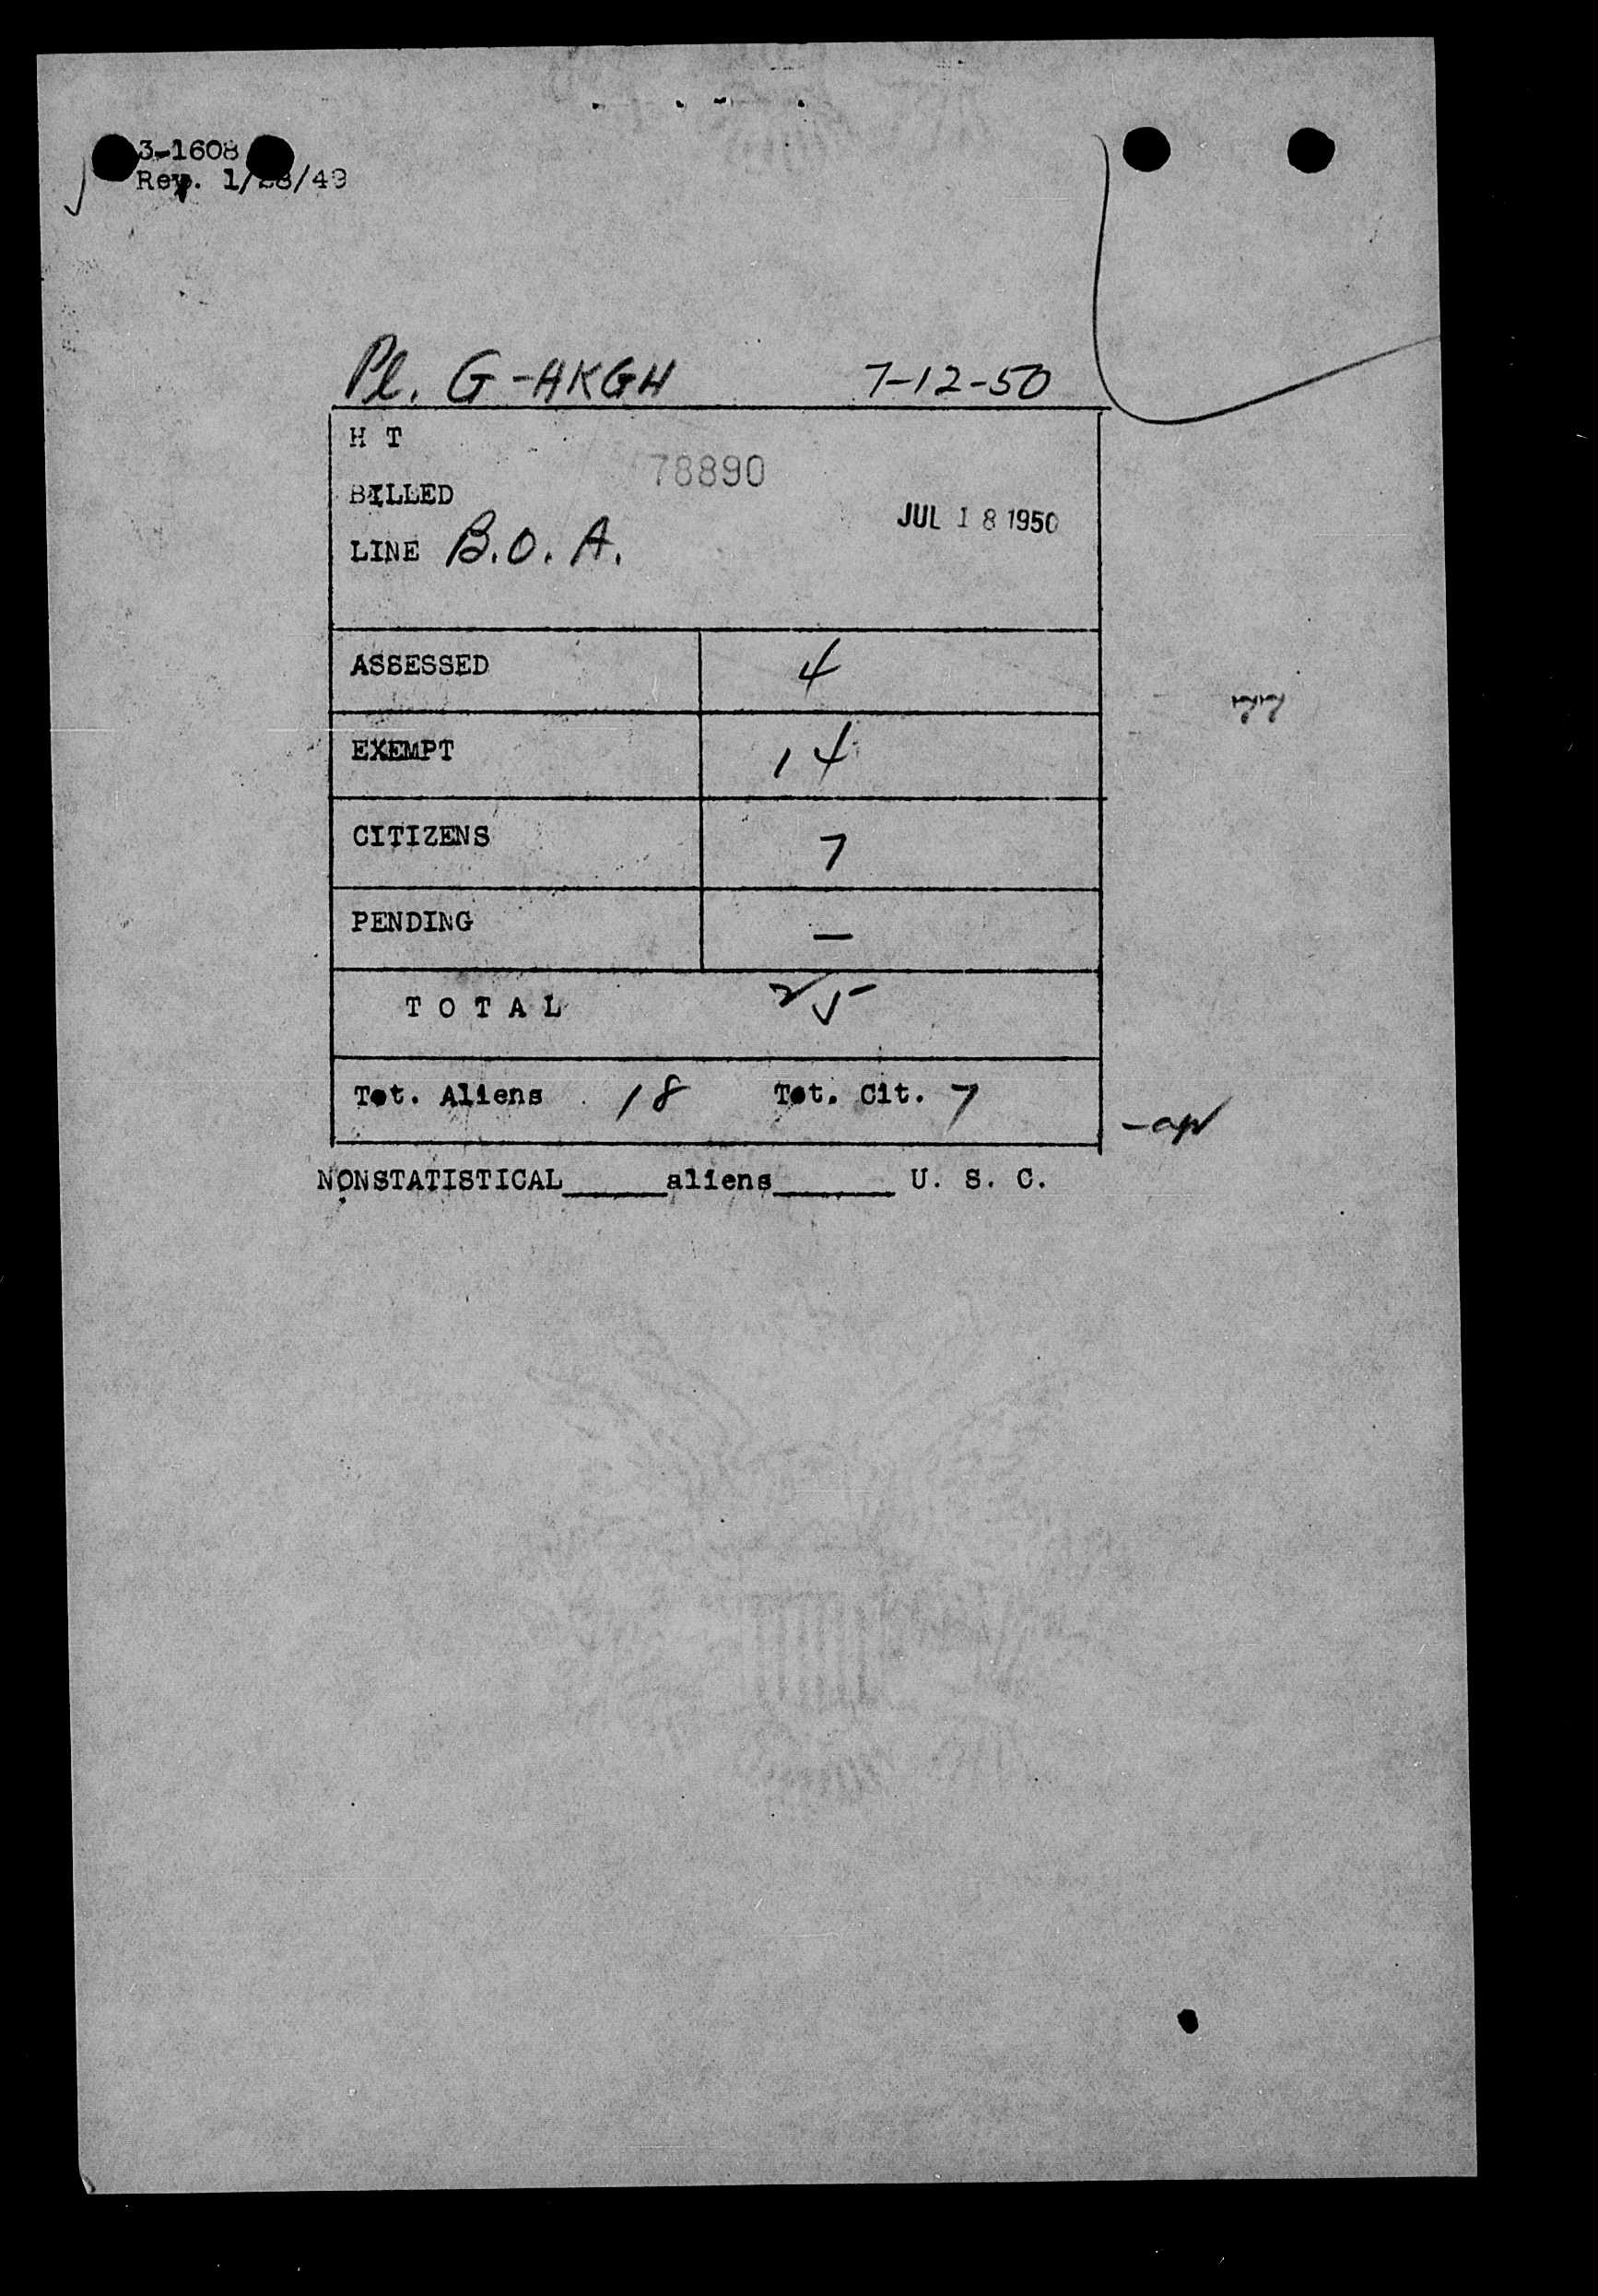 3-1608
Rev. 1/28/49
Pl. G-AKGH 7-12-50
H T
78890
BILLED
JUL 18 1950
LINE B.O.A.
ASSESSED 4
EXEMPT 14
CITIZENS 7
PENDING —
TOTAL 25
Tot. Aliens 18 Tot. Cit. 7
NONSTATISTICAL_____aliens______ U. S. C.